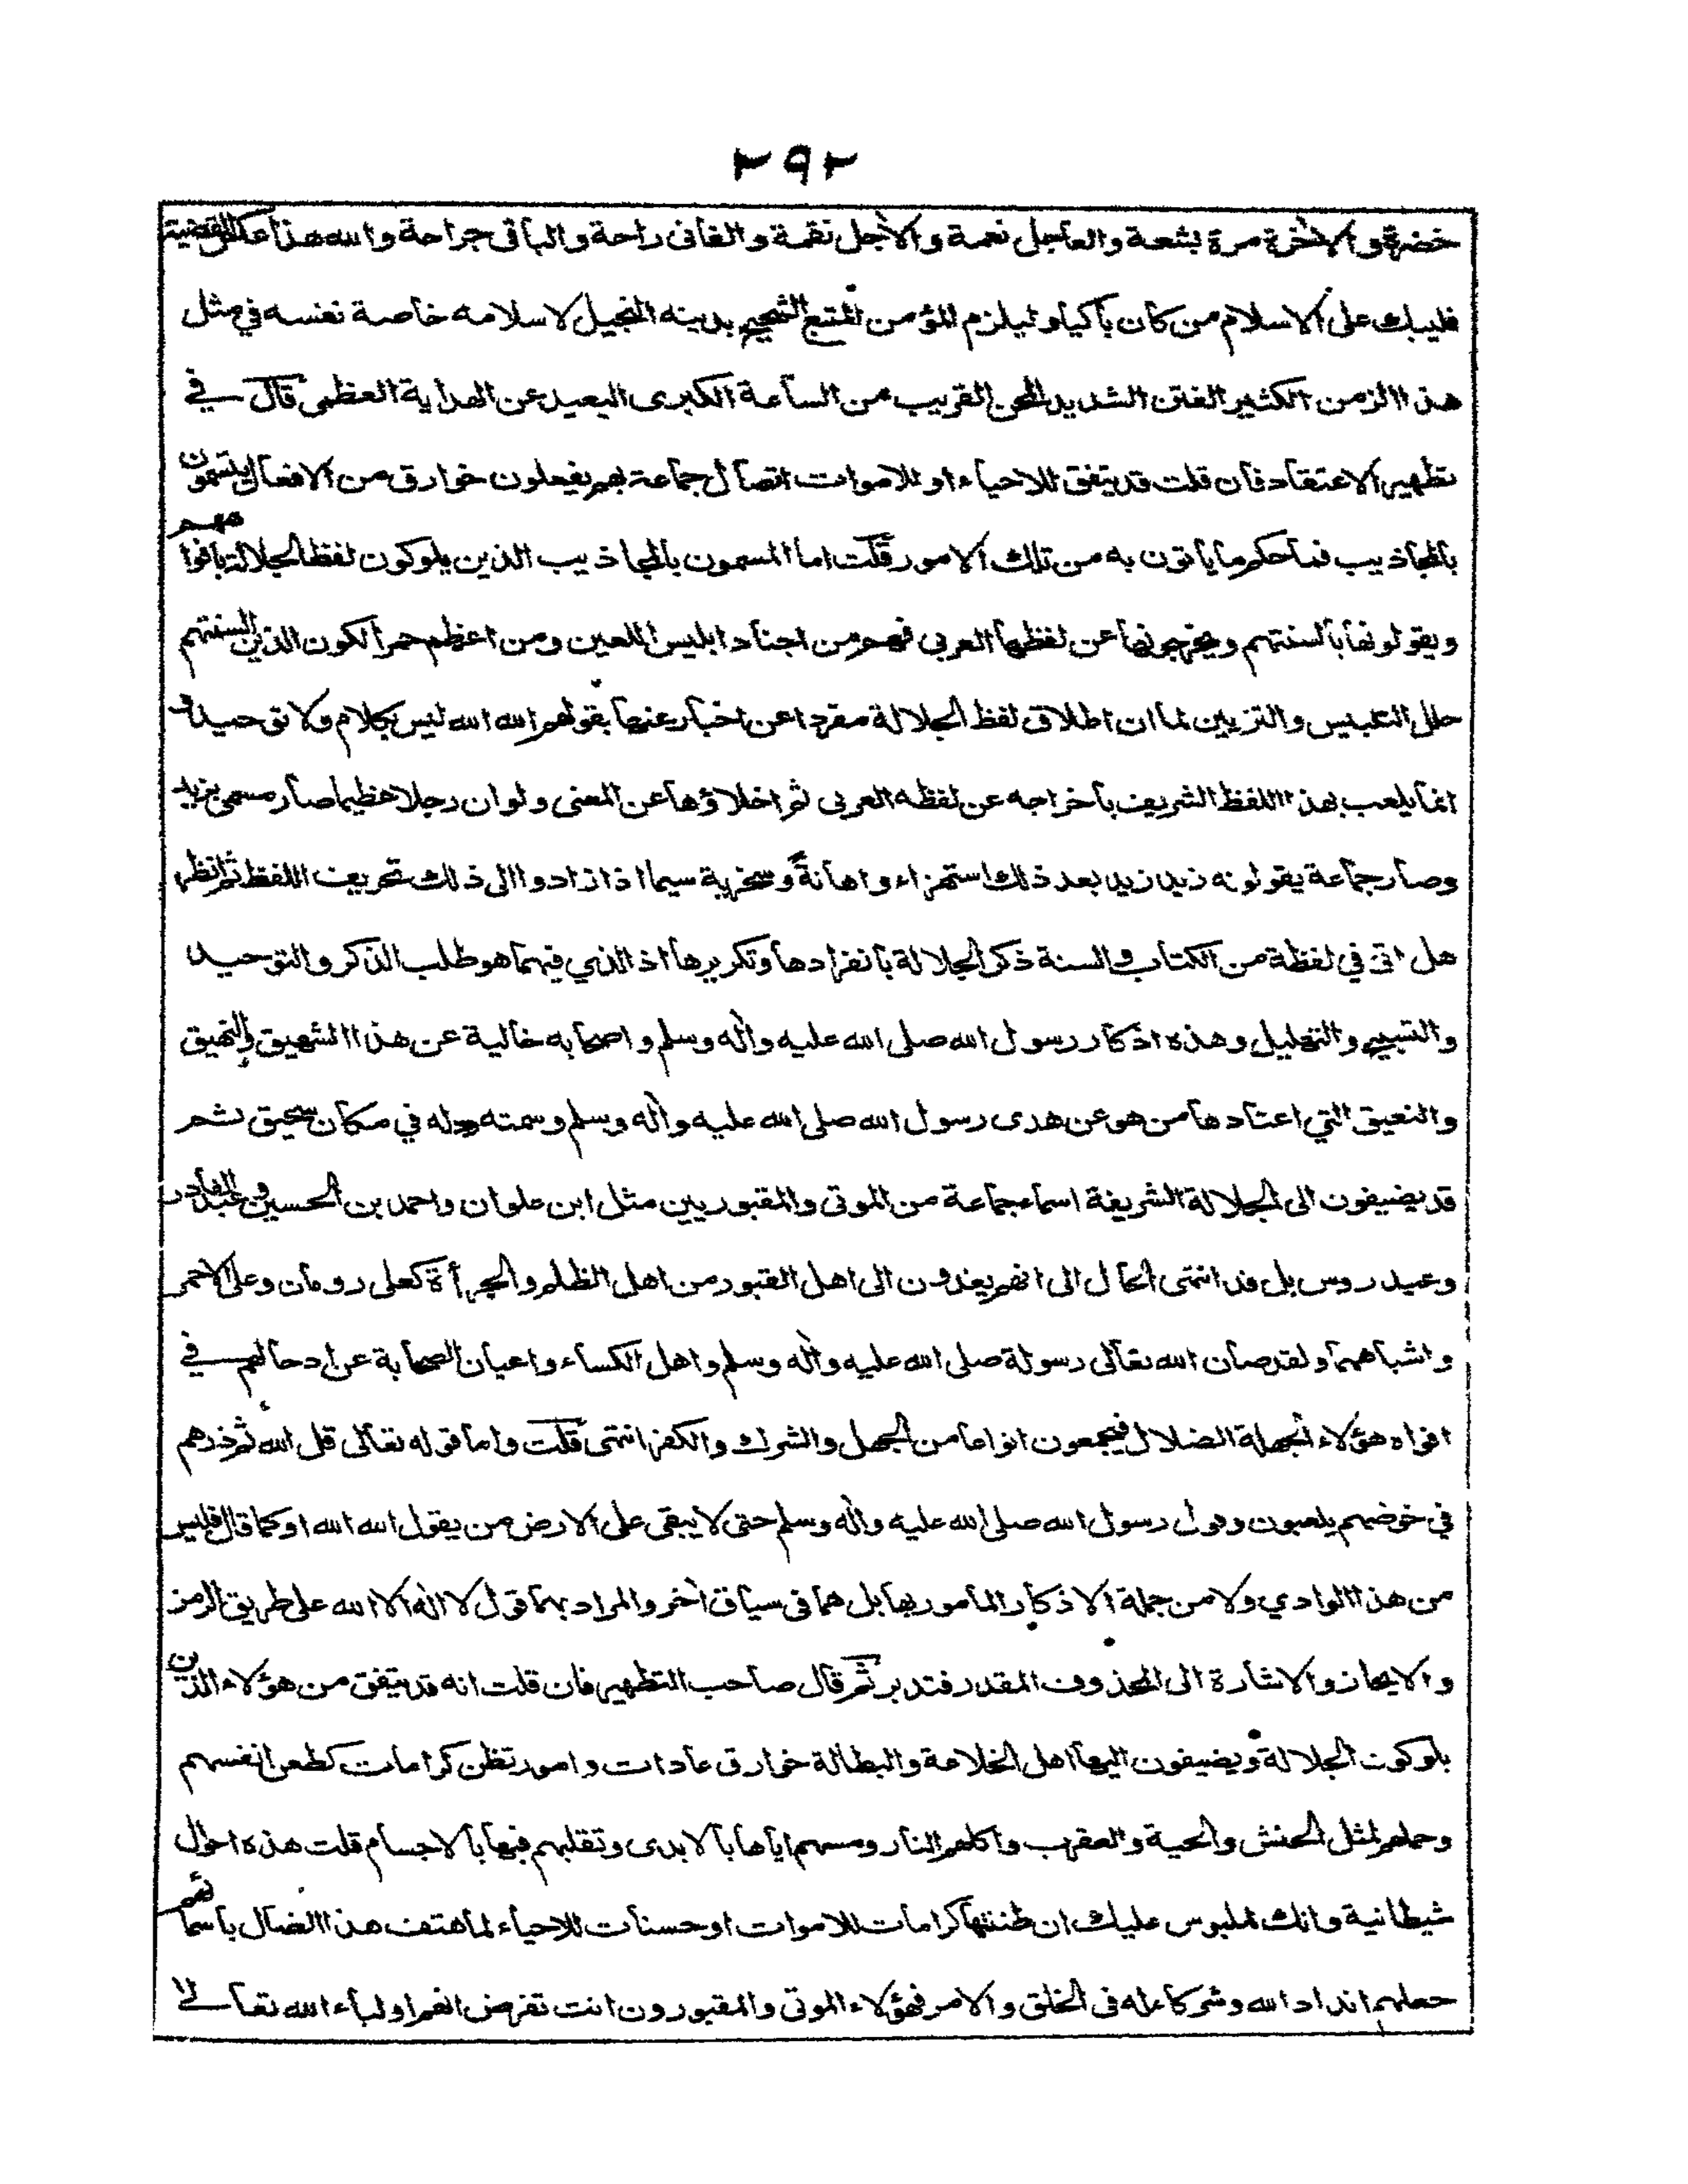 ٢٩٢
خضرة والآخرة مرة بشعة والعاجل نعمة والآجل نقمة والفانى راحة والباقى جراحة والله هذا عكس القضية
فليبك على الاسلام من كان باكيا وليلزم المؤمن المتبع الشحيح بدينه البخيل لاسلامه خاصة نفسه في مثل
هذا الزمن الكثير الفتن الشديد المحن القريب من الساعة الكبرى البعيد عن الهداية العظمى قال في
تطهير الاعتقاد فان قلت قد يتفق للاحياء او للاموات اتصال جماعة بهم يفعلون خوارق من الافعال يتسمون
بالمجاذيب فما حكم ما ياتون به من تلك الامور قلت اما المسمون بالمجاذيب الذين يلوكون لفظ الجلالة بافواههم
ويقولونها بالسنتهم ويخرجونها عن لفظها العربى فهم من اجناد ابليس اللعين ومن اعظم حمر الكون الذين البستهم
حلل التلبيس والتزيين لما ان اطلاق لفظ الجلالة مفردا عن اخبار عنها بقولهم الله الله ليس بكلام ولا توحيد و
انما يلعب بهذا اللفظ الشريف باخراجه عن لفظه العربى ثم اخلاؤها عن المعنى ولو ان رجلا عظيما صار مسمى بزيد
وصار جماعة يقولونه زيد زيد بعد ذلك استهزاء واهانة وسخرية سيما اذا زادوا الى ذلك تحريف اللفظ ثم انظر
هل اتى في لفظة من الكتاب والسنة ذكر الجلالة بانفرادها وتكريرها اذ الذي فيهما هو طلب الذكر والتوحيد
والتسبيح والتهليل وهذه اذكار رسول الله صلى الله عليه وآله وسلم واصحابه خالية عن هذا الشهيق والنهيق
والنعيق التي اعتادها من هو عن هدى رسول الله صلى الله عليه وآله وسلم وسمته ودله في مكان سحيق ثم
قد يضيفون الى الجلالة الشريفة اسماء جماعة من الموتى والمقبوريين مثل ابن علوان واحمد بن الحسين وعبد القادر
وعيدروس بل قد انتهى الحال الى انهم يفدون الى اهل القبور من اهل الظلم والجرأة كعلى رومان وعلى الاحمر
واشباههما ولقد صان الله تعالى رسوله صلى الله عليه وآله وسلم واهل الكساء واعيان الصحابة عن ادخالهم في
افواه هؤلاء الجهلة الضلال فيجمعون انواعا من الجهل والشرك والكفر انتهى قلت واما قوله تعالى قل الله ثم ذرهم
في خوضهم يلعبون وقول رسول الله صلى الله عليه وآله وسلم حتى لا يبقى على الارض من يقول الله الله او كما قال فليس
من هذا الوادي ولا من جملة الاذكار المأمور بها بل هما فى سياق آخر والمراد بهما قول لا اله الا الله على طريق الرمز
والايجاز والاشارة الى المحذوف المقدر فتدبر ثم قال صاحب التطهير فان قلت انه قد يتفق من هؤلاء الذين
يلوكون الجلالة ويضيفون اليها اهل الخلاعة والبطالة خوارق عادات وامور تظن كرامات كطعن انفسهم
وحملهم لمثل الحنش والحية والعقرب واكلهم النار ومسهم اياها بالايدى وتقلبهم فيها بالاجسام قلت هذه احوال
شيطانية وانك لملبوس عليك ان ظننتها كرامات للاموات او حسنات للاحياء لما هتف هذا الضال باسمائهم
جعلهم اندادا لله وشركاء له فى الخلق والامر فهؤلاء الموتى والمقبورون انت تفرض انهم اولياء الله تعالى